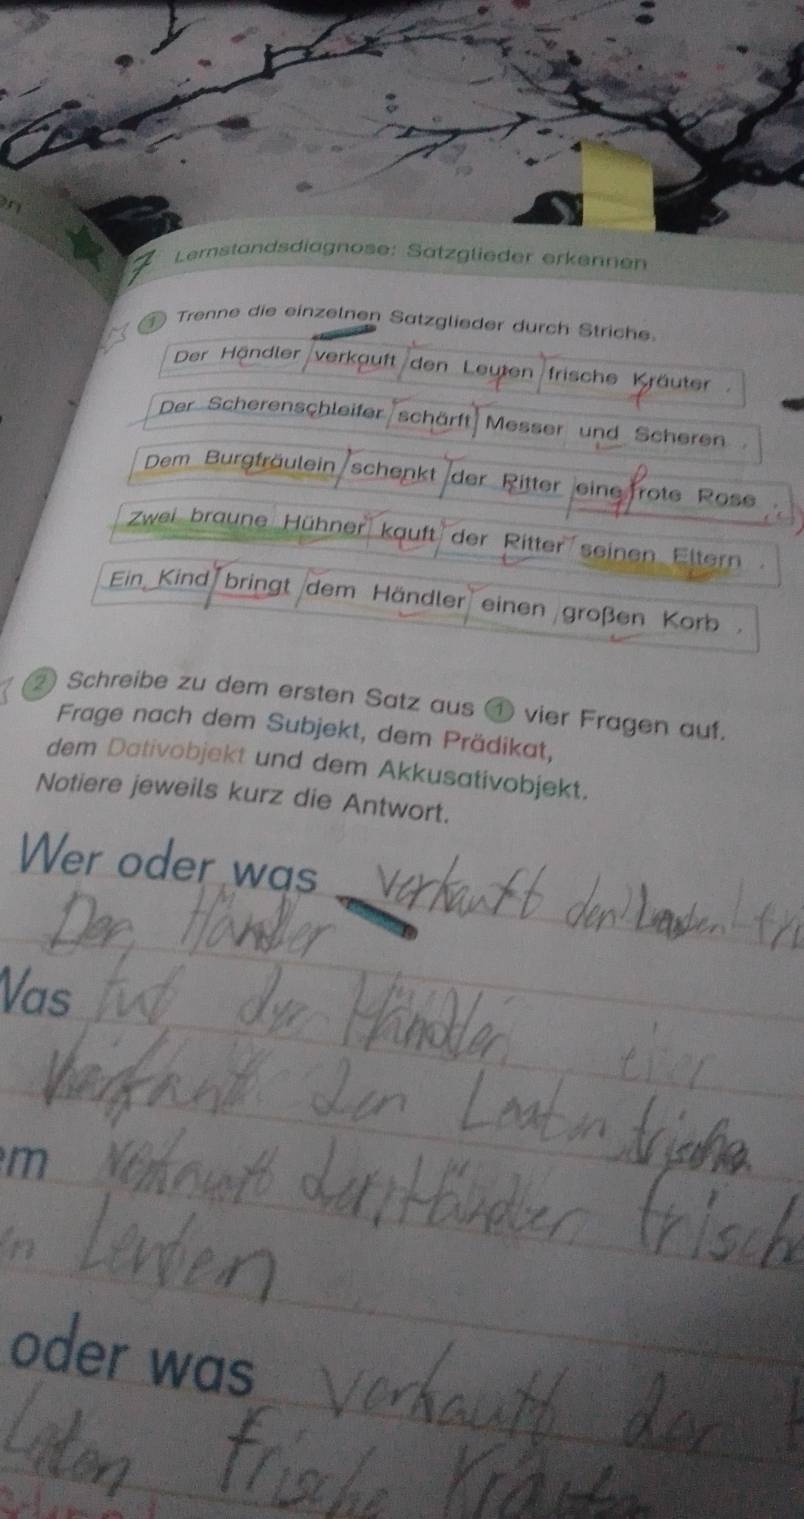 7 Lernstandsdiagnose: Satzglieder erkennen
1 Trenne die einzelnen Satzglieder durch Striche.
Der Händler verkauft den Leuten frische Kräuter .
Der Scherenschleifer schärft Messer und Scheren .
Dem Burgfräulein schenkt der Ritter eine rote Rose .
Zwei braune Hühner kauft der Ritter seinen Eltern .
Ein Kind bringt dem Händler einen großen Korb .
2 Schreibe zu dem ersten Satz aus 1 vier Fragen auf.
Frage nach dem Subjekt, dem Prädikat,
dem Dativobjekt und dem Akkusativobjekt.
Notiere jeweils kurz die Antwort.
Wer oder was verkauft den
Der Händler
Was tut der Händler
den
m verkauft der Händler frisch
oder was verkauft der
frische